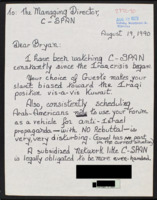 to: The Managing Director,
C-SPAN
August 19, 1990
Dear Bryan:
I have been watching C-SPAN
constantly since the Iraq crisis began.
Your choice of Guests makes your
slant biased toward the Iraqi
positive vis-a-vis Kuwait.
Also, consistently scheduling
Arab-Americans to use your Forum
as a vehicle for anti-Israel
propaganda—with NO Rebuttal—is
very, very disturbing.
A subsidised Network like C-SPAN
is legally obligated to be more even-handed.